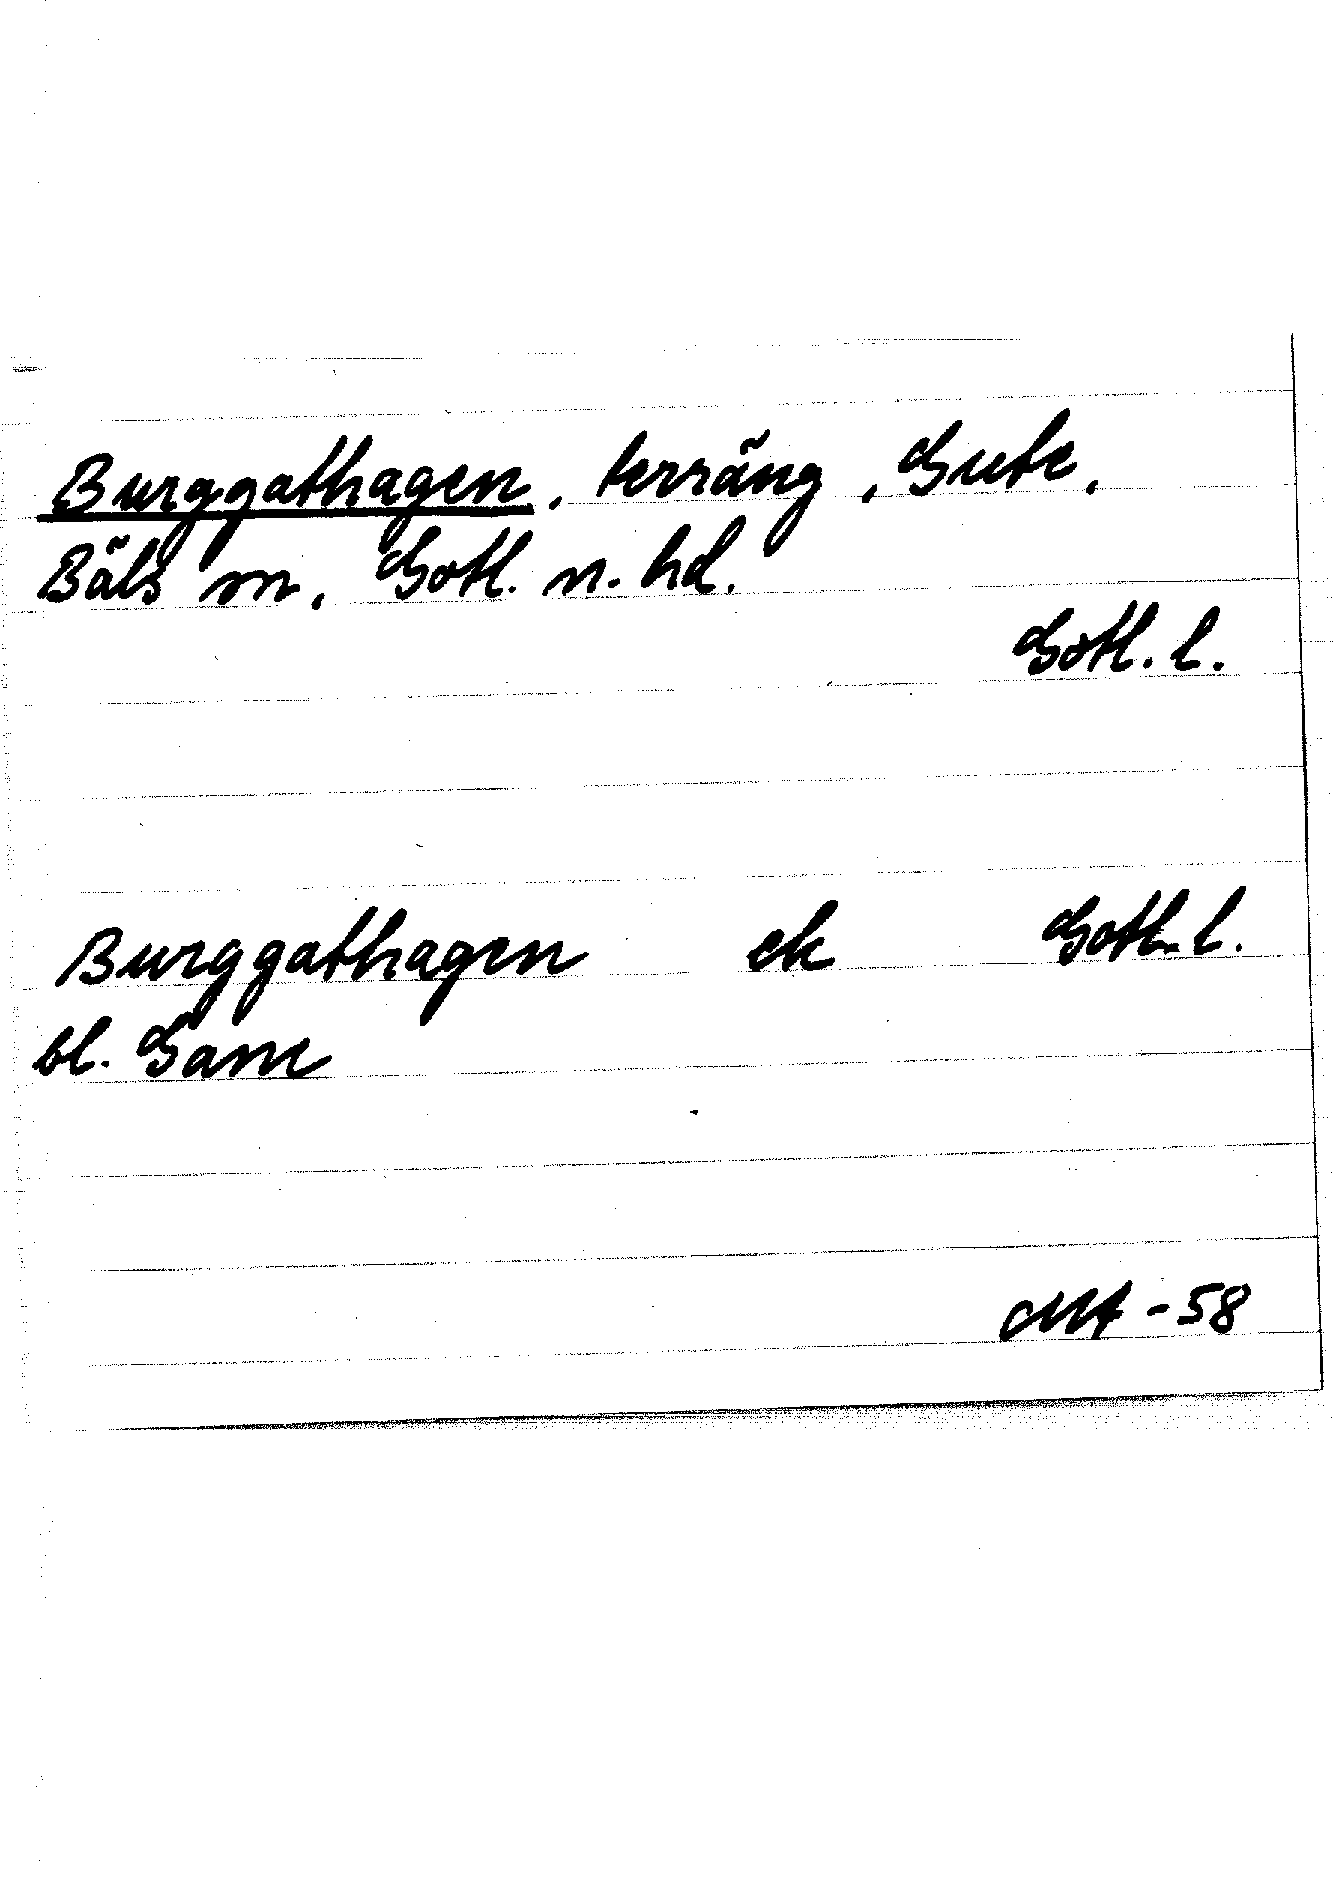 Burggathagen, terräng, Gute,
Bäls sn, Gotl. n. hd.
Gotl. l.
Burggathagen ek Gotl. l.
bl. Gann
MA -58